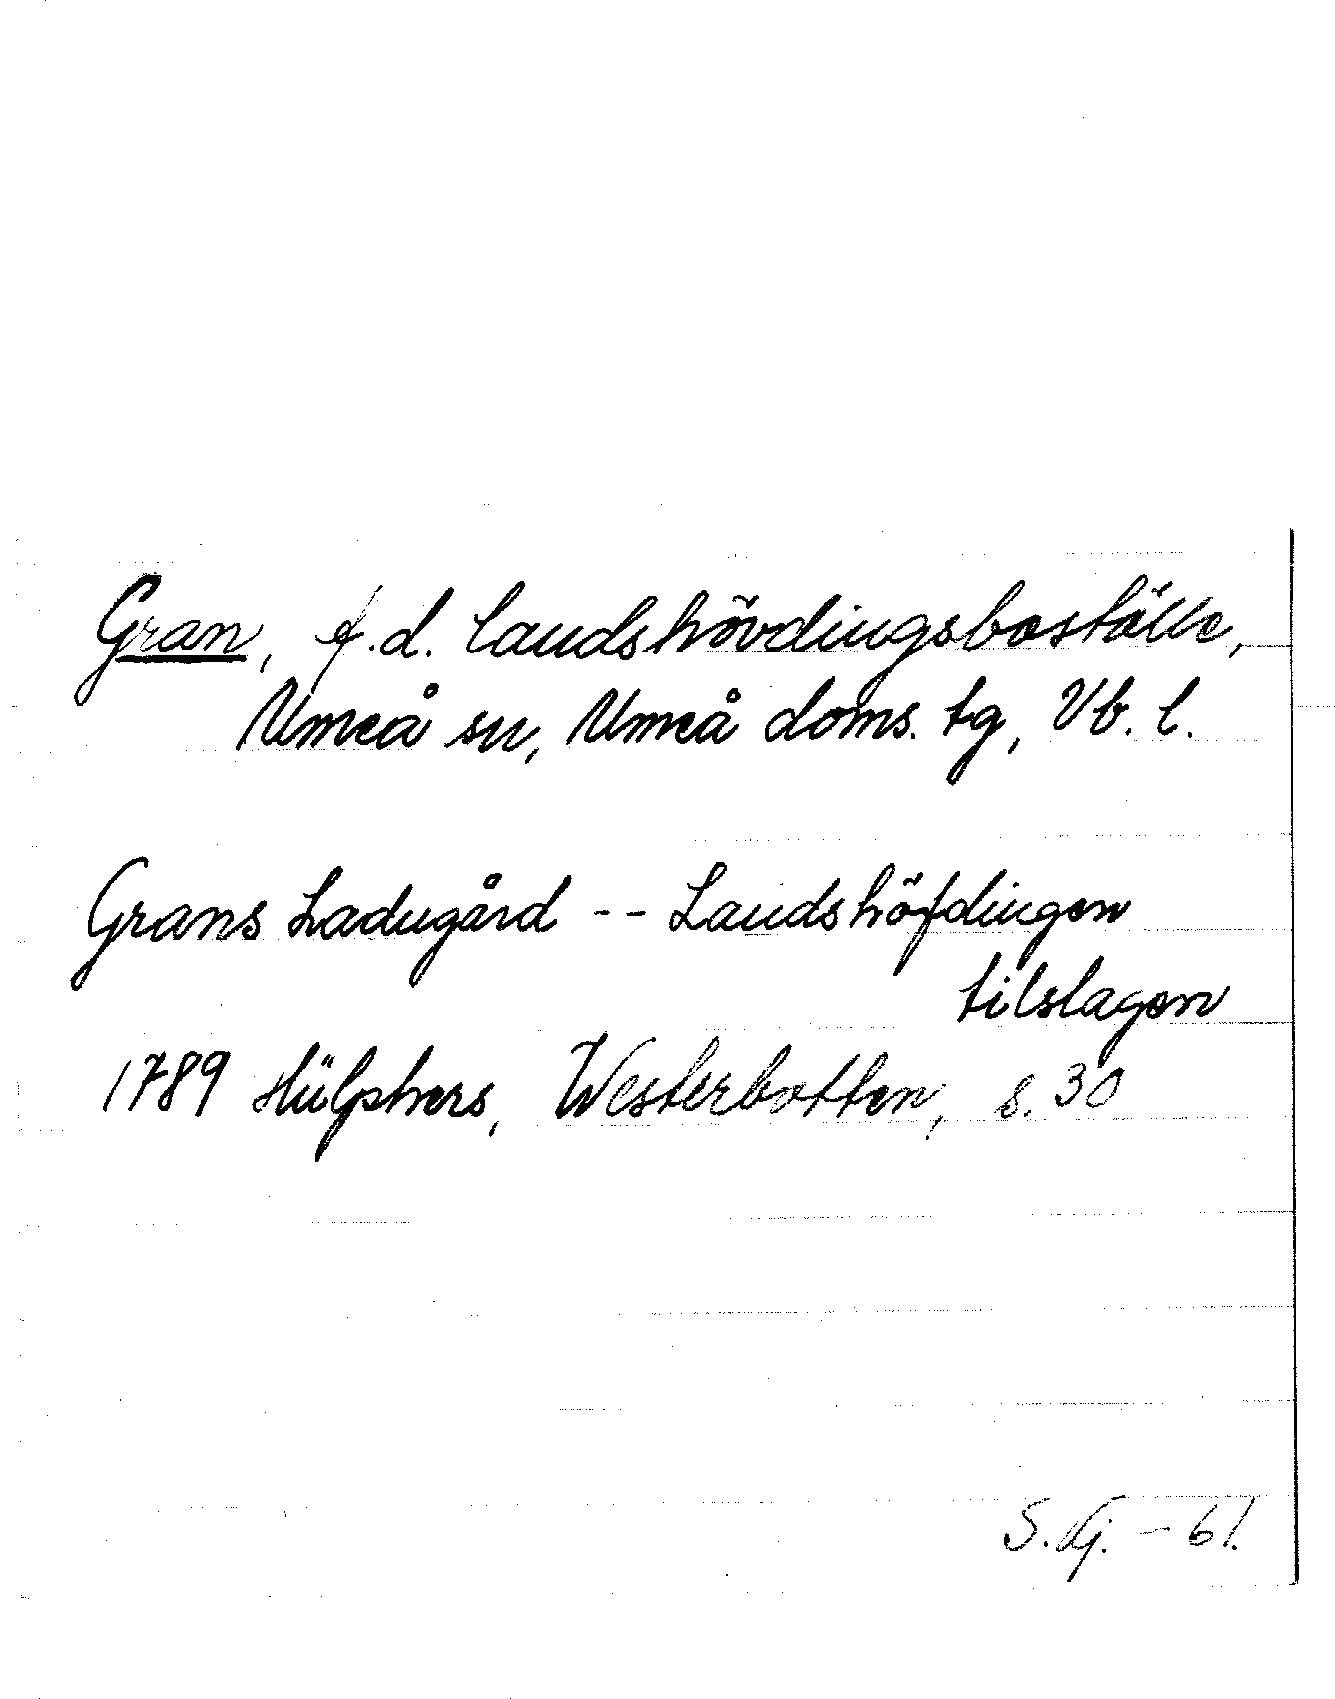 Gran, f.d. landshövdingsboställe,
Umeå sn, Umeå doms. tg, Vb. l.
Grans Ladugård -- Landshöfdingen
tilslagen
1789 Hülphers, Westerbotten, s. 30
S. Kj. - 61.